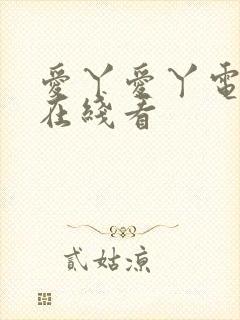 愛丫愛丫電
在綫看
貳姑凉